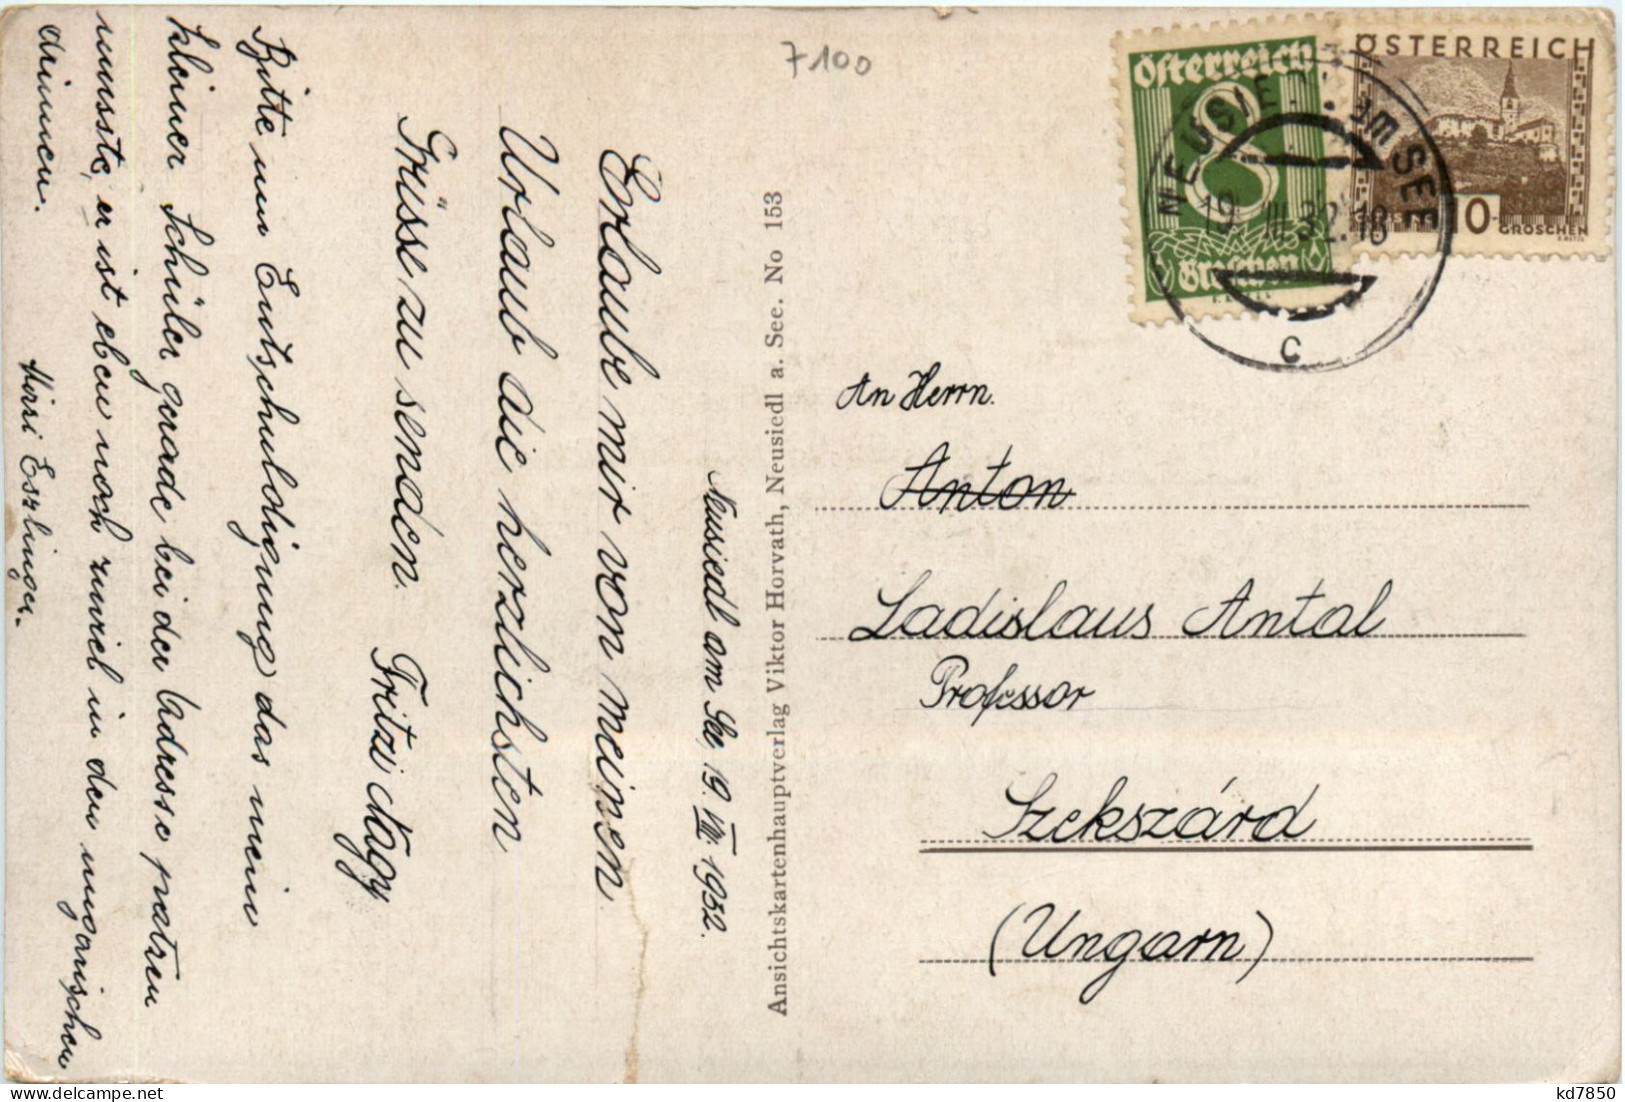 7100
Österreich
8
Groschen
ÖSTERREICH
10
GROSCHEN
NEUSIEDL am SEE
19. III. 32. 18
c
An Herrn.
Anton
Ladislaus Antal
Professor
Szekszárd
(Ungarn)
Ansichtskartenhauptverlag Viktor Horvath, Neusiedl a. See. No 153
Neusiedl am See, 19. VIII. 1932.
Erlaube mir von meinen
Urlaub die herzlichsten
Grüsse zu senden.
Fritzi Nagy
Bitte um Entschuldigung das mein
kleiner Schüler gerade bei der Adresse patzen
musste, er ist eben noch zuviel in den ungarischen
drinnen.
Eszlinger.
kd7850